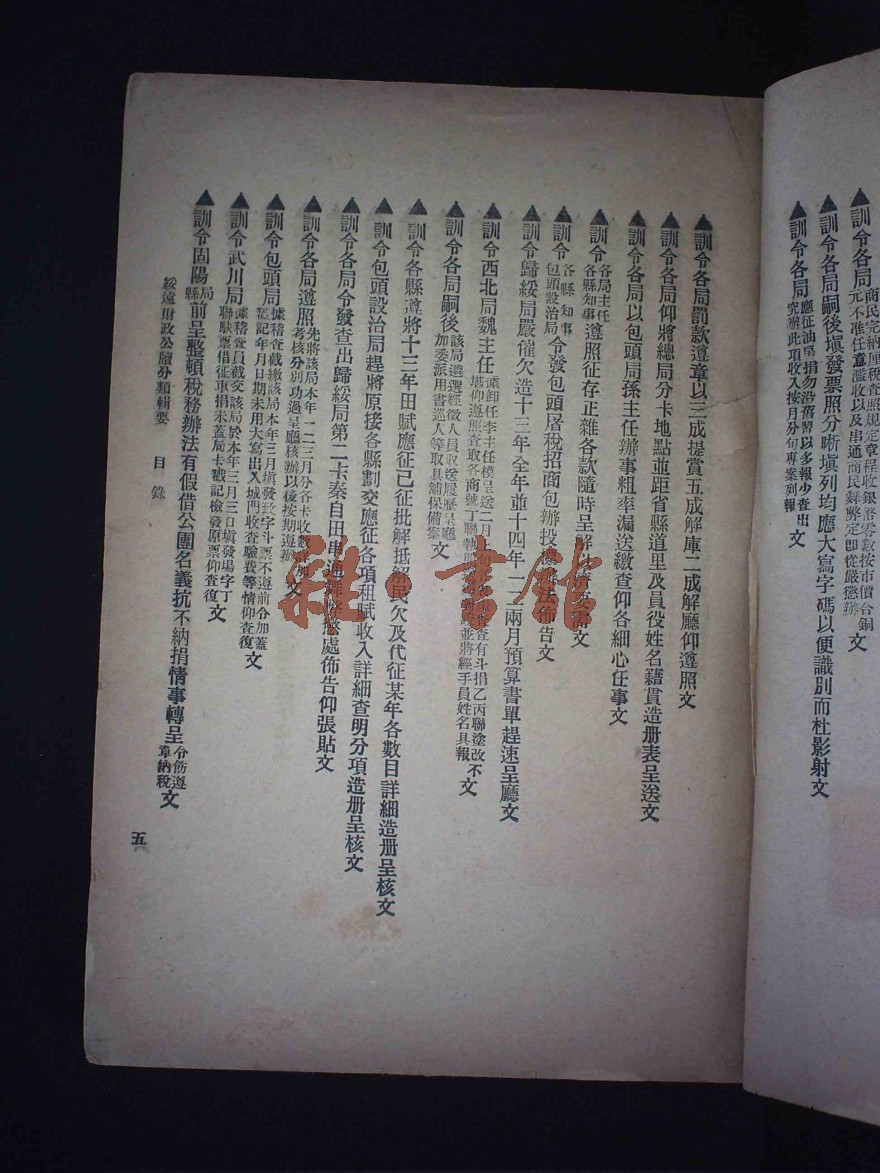 ▲訓令各局商民完納厘稅查照規定章程收銀幣零數按市價合銅
元不准任意濫收以及串通商民舞弊定即從嚴懲辦文
▲訓令各局嗣後填發票照分晰填列均應大寫字碼以便識別而杜影射文
▲訓令各局應征油捐勿沿舊習以多報少查出
究辦此項收入按月分旬專案列報文
▲訓令各局罰款遵章以三成提賞五成解庫二成解廳仰遵照文
▲訓令各局仰將總局分卡地點並距省縣道里及員役姓名藉貫造册表呈送文
▲訓令各局以包頭局孫主任辦事粗率漏送繳查仰各細心任事文
▲訓令各局主任
各縣知事遵照征存正雜各款隨時呈解文
▲訓令各縣知事
包頭設治局令發包頭屠稅招商包辦投法佈告文
▲訓令歸綏局嚴催欠造十三年全年並十四年一二兩月預算書單趕速呈廳文
▲訓令西北局魏主任據卸任李主任呈送二月查有斗捐乙丙聯塗改不
堪仰遵照查取各商號丁聯執照並將經手員姓名具報文
▲訓令各局嗣後該局遴選經徵人員取送履歷呈廳
加委派用書巡人等取具舖保備案文
▲訓令各縣遵將十三年田賦應征已征批解抵解民欠及代征某年各數目詳細造册呈核文
▲訓令包頭設治局趕將原接各縣劃交應征各項租賦收入詳細查明分項造册呈核文
▲訓令各局令發查出歸綏局第二卡秦自田串通舞弊懲處佈告仰張貼文
▲訓令各局遵照先將該局本年一二三月分各卡收數加
考核分別功過呈廳核辦以後按期遵辦文
▲訓令包頭局據稽查員截繳該局本年三月填發致字斗票不遵前分加蓋
戳記年月日期未用大寫出入城門收查驗費等情仰查復文
▲訓令武川局據稽查員截交該局於本年三月三日填發場字丁
聯駄票借征車捐未蓋局卡戳記檢發原票仰查復文
▲訓令固陽局
縣前呈整頓稅務辦法有假借公團名義抗不納捐情事轉呈令飭遵
章納稅文
綏遠財政公牘分類輯要　目錄
五
雜·書館